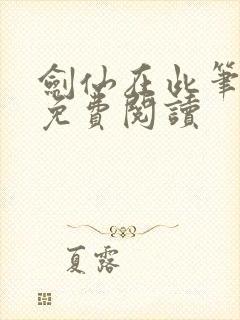 劍仙在此筆
免費閱讀
夏露